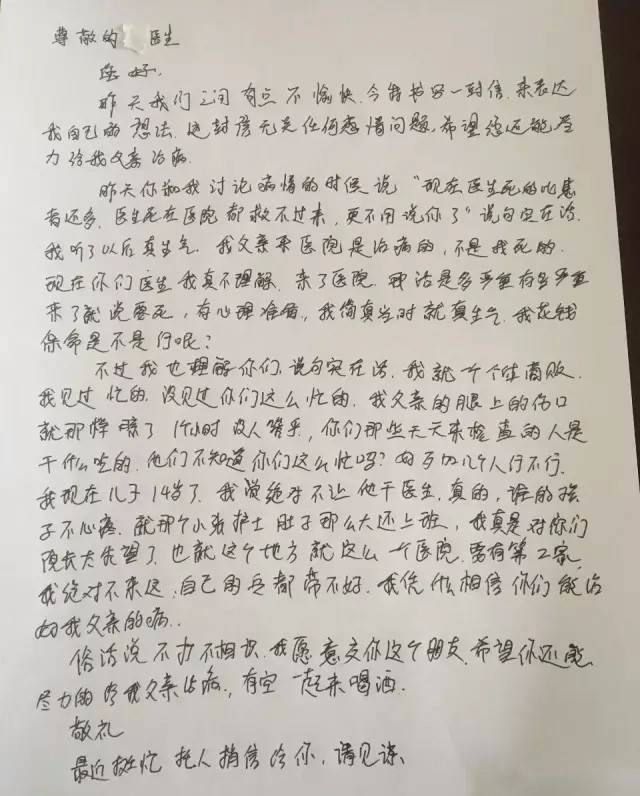 尊敬的 医生
您好.
昨天我们之间有点不愉快.今特书写一封信.来表达
我自己的想法.这封信无关任何感情问题.希望您还能尽
力给我父亲治病.
昨天你和我讨论病情的时候说"现在医生死的比患
者还多.医生死在医院都救不过来,更不用说你了"说句实在话.
我听了以后真生气.我父亲来医院是治病的,不是找死的.
现在你们医生我真不理解.来了医院.那话是多严重有多严重
来了就说要死,有心理准备,我倆真当时就真生气.我花钱
保命是不是行呢?
不过我也理解你们,说句实在话.我就一个个体商贩.
我见过忙的.没见过你们这么忙的.我父亲的腿上的伤口
就那样晾了1个小时没人管乎,你们那些天天来检查的人是
干什么吃的.他们不知道你们这么忙吗?多加几个人行不行.
我现在儿子14岁了.我说绝对不让他干医生.真的,谁的孩
子不心疼.就那个小张护士肚子那么大还上班,我真是对你们
院长太失望了.也就这个地方就这么一个医院.要有第二家,
我绝对不来这.自己的兵都带不好.我凭什么相信你们能治
好我父亲的病..
俗话说不打不相识.我愿意交你这个朋友.希望你还能
尽力的给我父亲治病,有空一起来喝酒.
敬礼
最近挺忙托人捎信给你,请见谅.